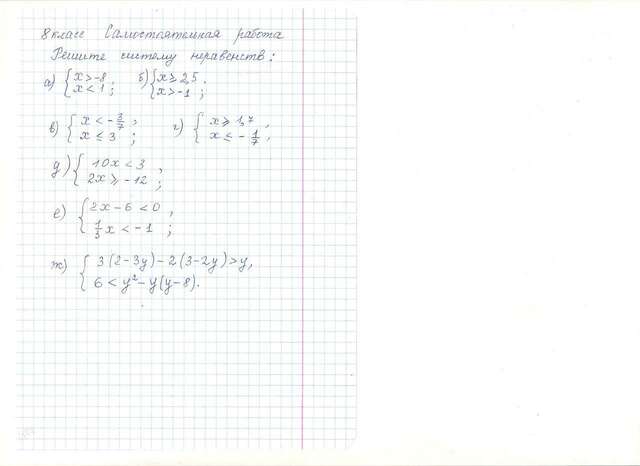 8 класс Самостоятельная работа
Решите систему неравенств:
а) { x > -8 ; б) { x ≥ 2,5 .
x < 1 ; x > -1 ;
в) { x < -3/7 , г) { x ≥ 1,7 ,
x ≤ 3 ; x ≤ -1/7 ,
д) { 10x < 3 ,
2x ≥ -12 ;
е) { 2x - 6 < 0 ,
1/3 x < -1 ;
ж) { 3(2-3y) - 2(3-2y) > y,
6 < y² - y(y-8).